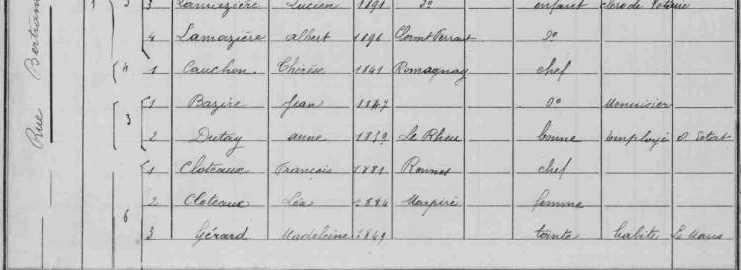 Rue Bertrand
1 3 3 Lamazière Lucien 1891 do enfant clerc de Notaire
4 Lamazière albert 1896 Clermt Ferrant do
4 1 Cauchon Thérèse 1841 Romagnay chef
3 1 Bazire Jean 1847 do Menuisier
2 Dutay anne 1859 Le Rheu bonne employé
6 1 Cloteaux François 1881 Rennes chef
2 Cloteaux Léa 1884 Marpiré femme
3 Gérard Madeleine 1849 tante habite Le Mans